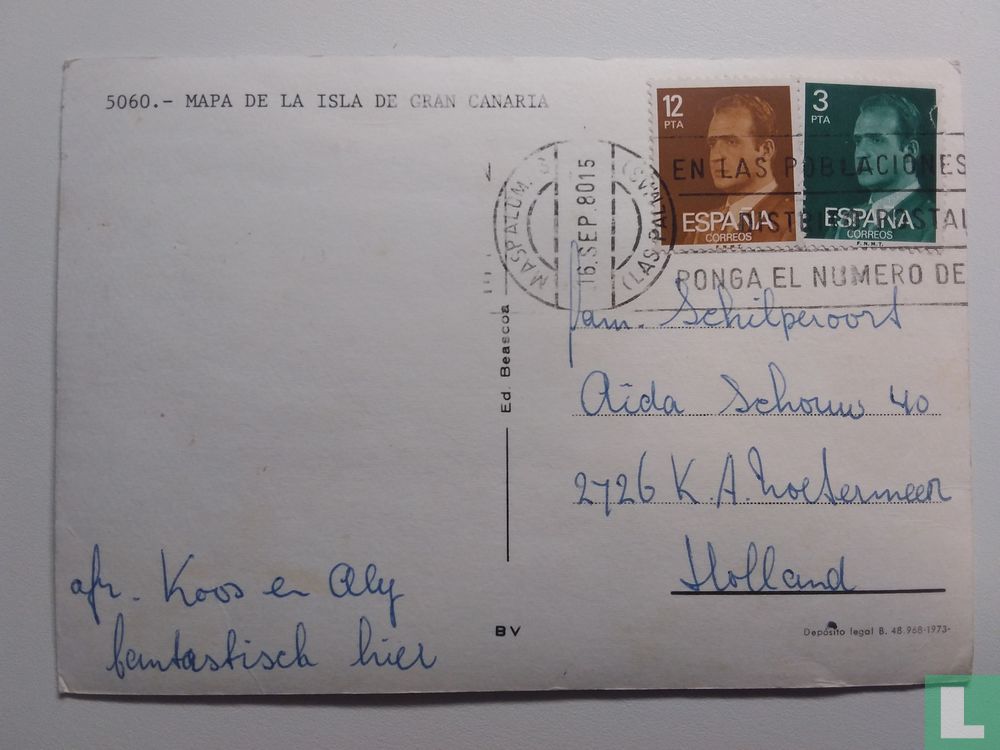 5060.- MAPA DE LA ISLA DE GRAN CANARIA
12 PTA
ESPAÑA
CORREOS
F.N.M.T.
3 PTA
ESPAÑA
CORREOS
F.N.M.T.
MASPALOM.
16.SEP.8015
(LAS PALMAS)
EN LAS POBLACIONES
DISTRITO POSTAL
PONGA EL NUMERO DE
fam. Schilperoort
Aïda Schouw 40
2726 K.A. Zoetermeer
Holland
Ed. Beascoa
BV
afz. Koos en Aly
fantastisch hier
Depósito legal B. 48.968-1973-
L